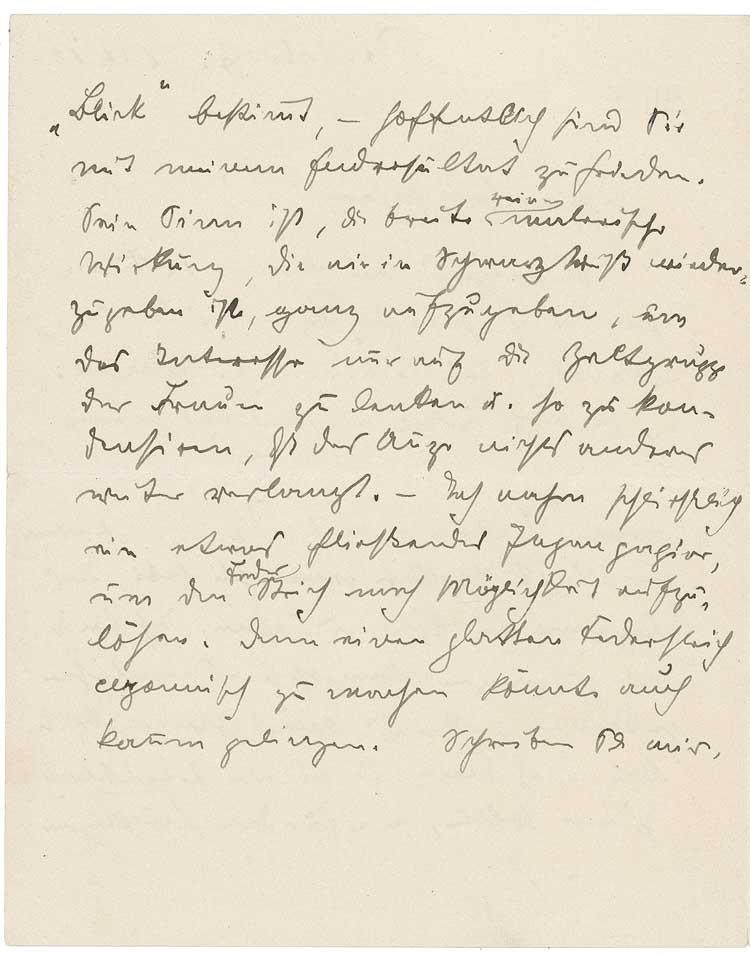 „Blick“ bestimt, – hoffentlich sind Sie
mit meinem Endresultat zufrieden.
Sein Sinn ist, die breite rein malerische
Wirkung, die nie in Schwarzweiß wieder-
zugeben ist, ganz aufzugeben, um
das Interesse nur auf die Zeltgruppe
der Frauen zu lenken u. so zu kon-
densiren, dß das Auge nichts anderes
weiter verlangt. – Ich nahm schließlich
ein etwas fließendes Japanpapier,
um den Feder Strich nach Möglichkeit aufzu-
lösen. Denn einen glatten Federstrich
cezannisch zu machen könnte auch
kaum gelingen. Schreiben Sie mir,